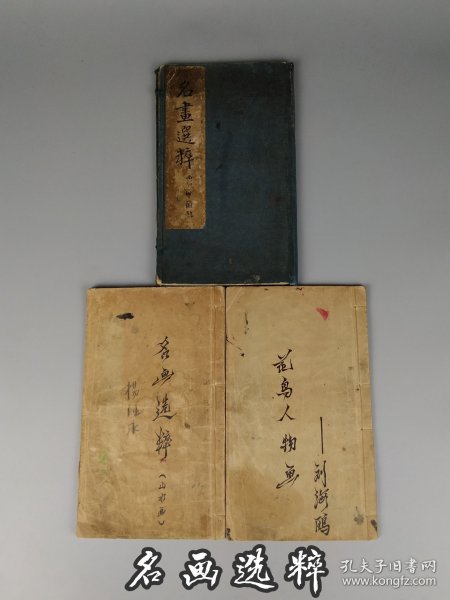 名畫選粹
名画選粹
(山水画)
花鸟人物画
名画选粹
孔夫子旧书网
www.kongfz.com